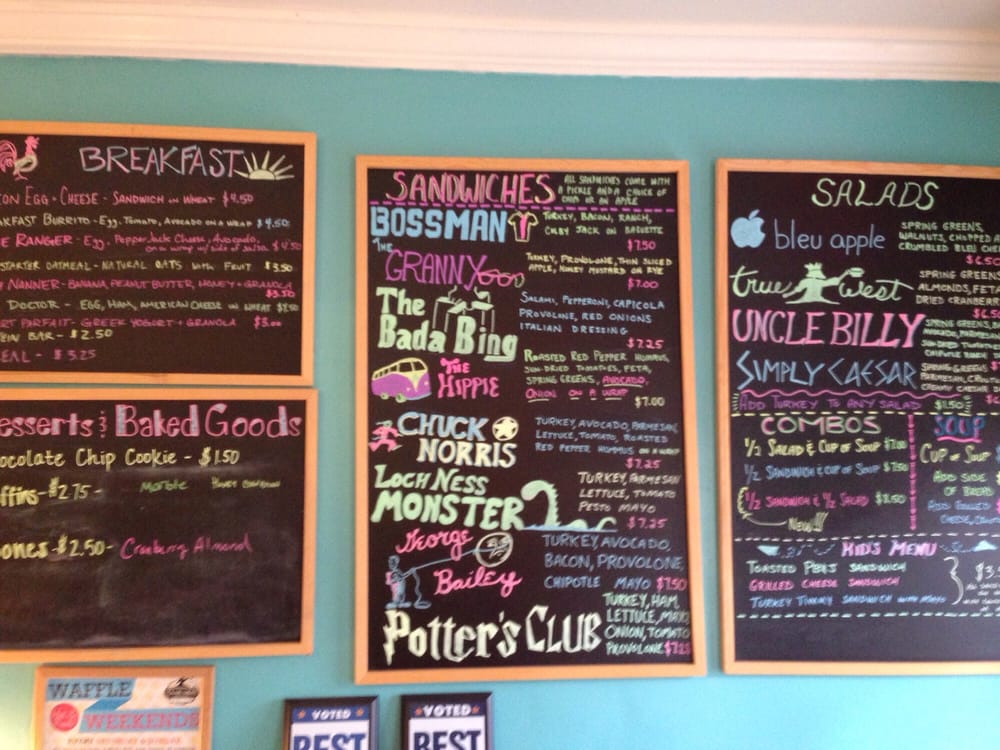 BREAKFAST
EGG + CHEESE - SANDWICH ON WHEAT $4.50
BURRITO - Egg, Tomato, AVOCADO ON A WRAP $4.50
RANGER - Egg, PepperJack Cheese, Avocado,
on a wrap w/ side of salsa $4.50
STARTER OATMEAL - NATURAL OATS with FRUIT $3.50
NANNER - BANANA, PEANUT BUTTER, HONEY + GRANOLA
$3.50
DOCTOR - EGG, HAM, AMERICAN CHEESE ON WHEAT
PARFAIT - GREEK YOGURT + GRANOLA $3.00
BAR - $2.50
- $3.25
Desserts & Baked Goods
Chocolate Chip Cookie - $1.50
$2.75 - Marble
$2.50 - Cranberry Almond
WAFFLE
WEEKENDS
SANDWICHES
ALL SANDWICHES COME WITH
A PICKLE AND A CHOICE OF
CHIPS OR AN APPLE
BOSSMAN
TURKEY, BACON, RANCH,
COLBY JACK ON BAGUETTE
$7.50
THE GRANNY
TURKEY, PROVOLONE, THIN SLICED
APPLE, HONEY MUSTARD ON RYE
$7.00
The Bada Bing
SALAMI, PEPPERONI, CAPICOLA
PROVOLINE, RED ONIONS
ITALIAN DRESSING
$7.25
THE HIPPIE
ROASTED RED PEPPER HUMMUS,
SUN-DRIED TOMATOES, FETA,
SPRING GREENS, AVOCADO,
ONION ON A WRAP
$7.00
CHUCK NORRIS
TURKEY, AVOCADO, PARMESAN,
LETTUCE, TOMATO, ROASTED
RED PEPPER HUMMUS ON A WRAP
$7.25
LOCH NESS MONSTER
TURKEY, PARMESAN
LETTUCE, TOMATO
PESTO MAYO
$7.25
George Bailey
TURKEY, AVOCADO,
BACON, PROVOLONE,
CHIPOTLE MAYO $7.50
Potter's CLUB
TURKEY, HAM,
LETTUCE, MAYO
ONION, TOMATO
PROVOLONE $7.25
VOTED
BEST
VOTED
BEST
SALADS
bleu apple
SPRING GREENS,
WALNUTS, CHOPPED
CRUMBLED BLEU
$6.50
true West
SPRING GREENS
ALMONDS, FETA
DRIED CRANBERR
UNCLE BILLY
SPRING GREENS,
AVOCADO, PARMESAN
SUN-DRIED
CHIPOTLE RANCH
SIMPLY CAESAR
SPRING GREENS
PARMESAN,
CREAMY CAESAR
ADD TURKEY TO ANY SALAD $1.50
COMBOS
1/2 SALAD & CUP OF SOUP
1/2 SANDWICH & CUP OF SOUP $7.50
1/2 SANDWICH & 1/2 SALAD $8.50
New!!!
SOUP
CUP OF SOUP
ADD SIDE
OF BREAD
KID'S MENU
TOASTED PB&J SANDWICH
GRILLED CHEESE SANDWICH
TURKEY TUMMY SANDWICH WITH MAYO